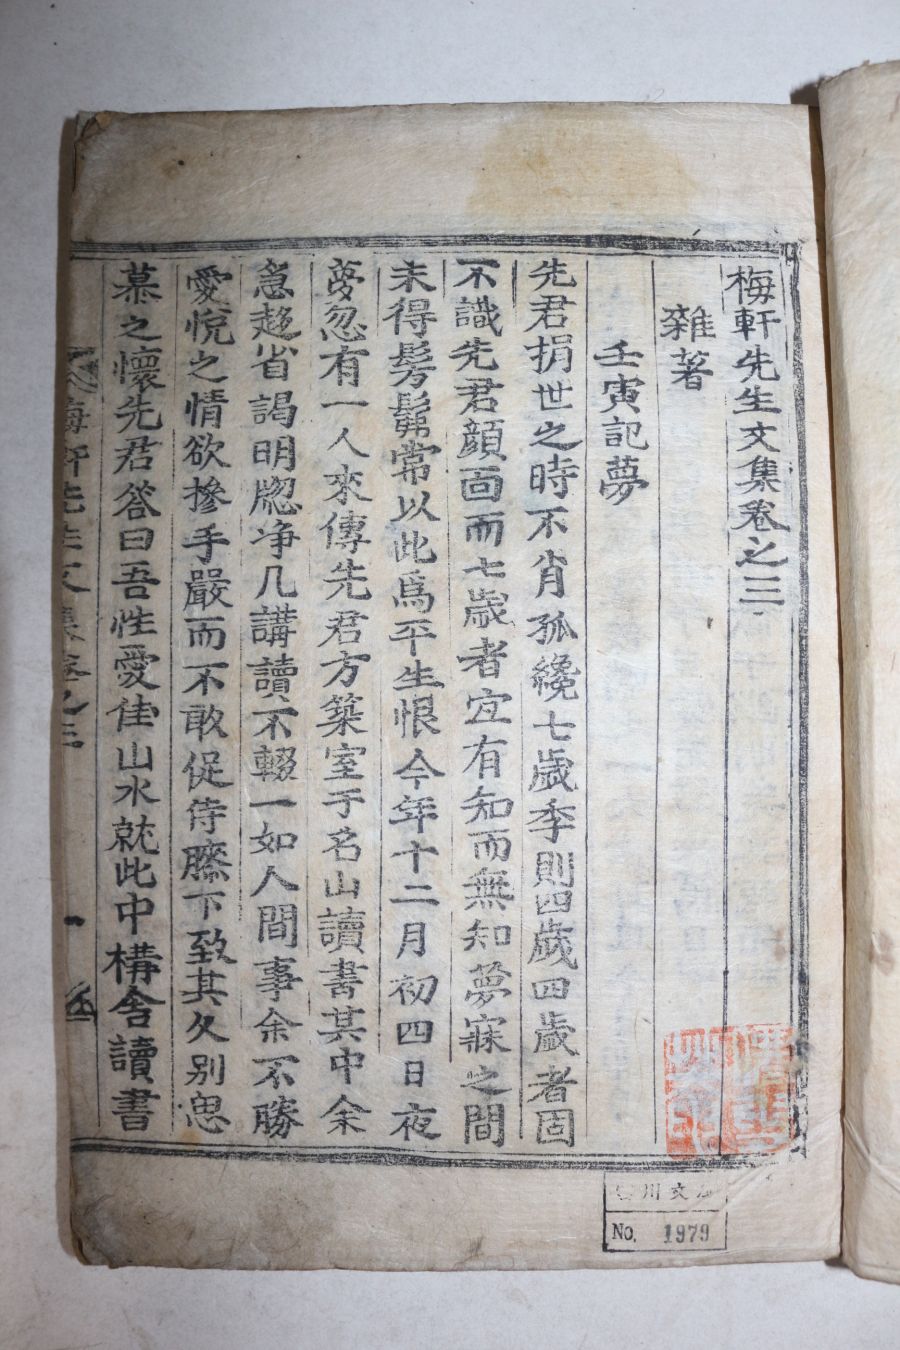 梅軒先生文集卷之三
雜著
壬寅記夢
先君捐世之時不肖孤纔七歲季則四歲四歲者固
不識先君顔面而七歲者宜有知而無知夢寐之間
未得髣髴常以此爲平生恨今年十二月初四日夜
夢忽有一人來傳先君方築室于名山讀書其中余
急趍省謁明牕净几講讀不輟一如人間事余不勝
愛悅之情欲摻手嚴而不敢促侍膝下致其久別思
慕之懷先君答曰吾性愛佳山水就此中構舍讀書
梅軒先生文集卷之三
一
川文
No. 1979